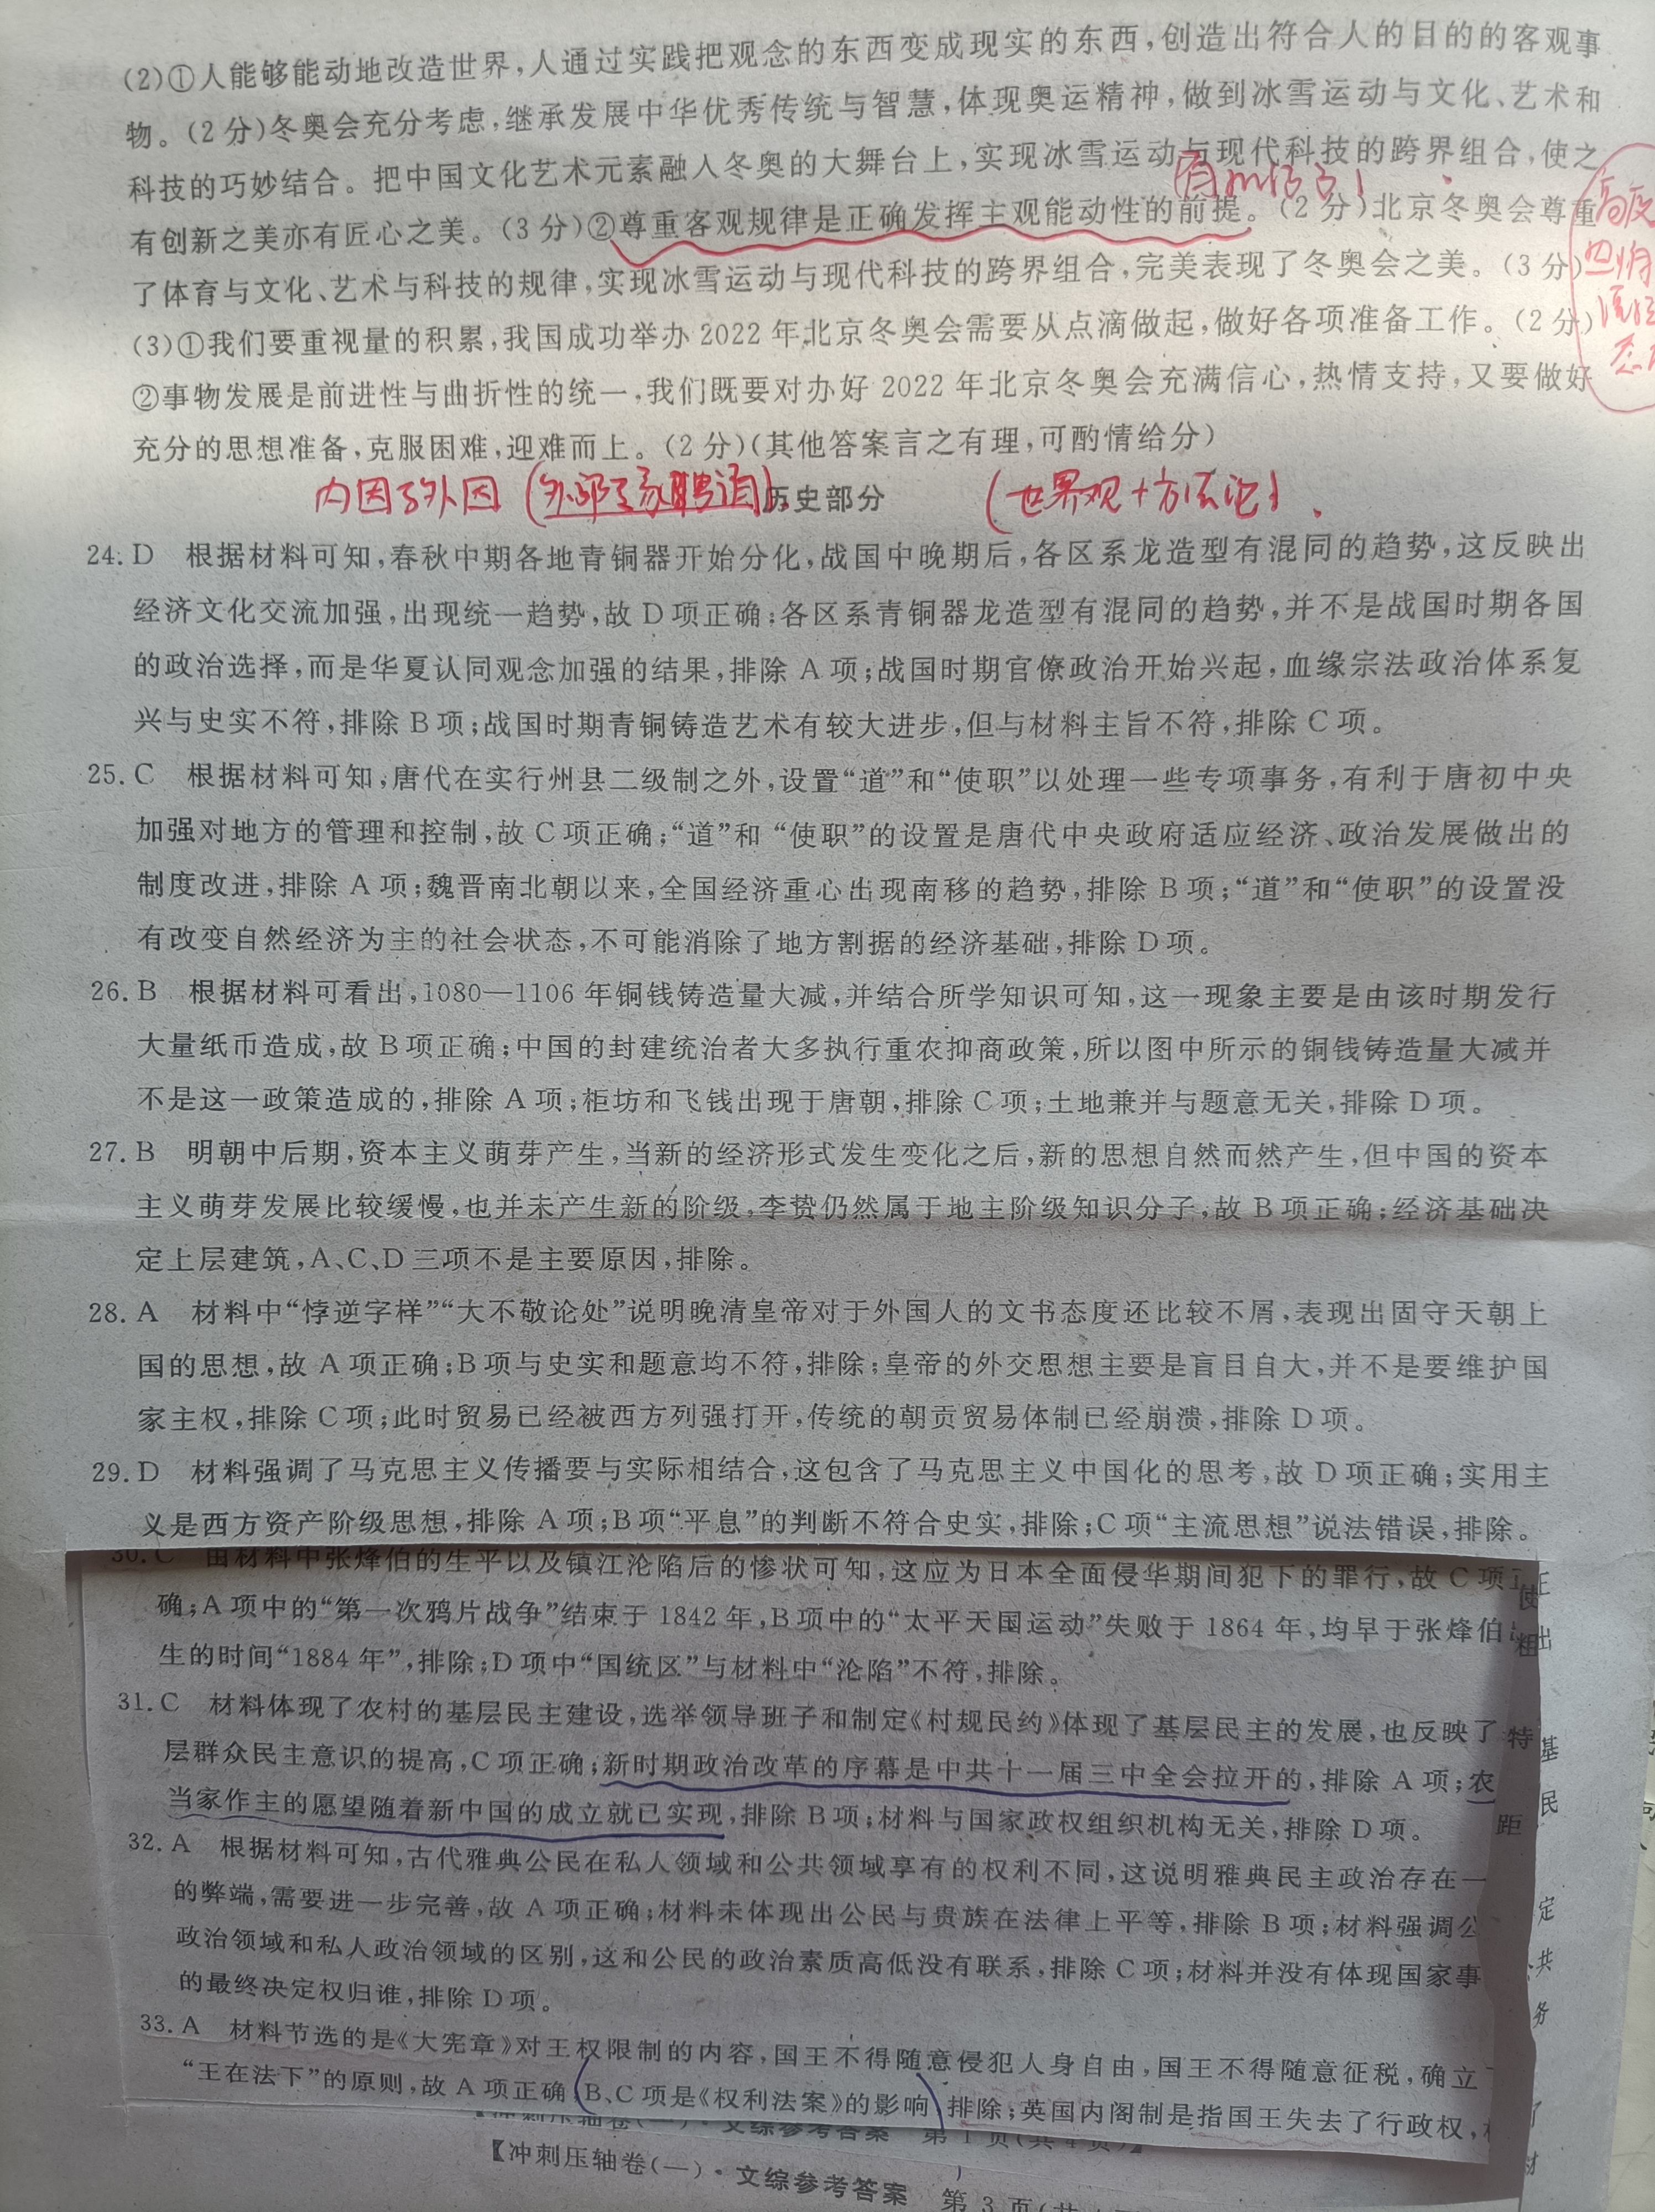 (2)①人能够能动地改造世界,人通过实践把观念的东西变成现实的东西,创造出符合人的目的的客观事
物。(2分)冬奥会充分考虑,继承发展中华优秀传统与智慧,体现奥运精神,做到冰雪运动与文化、艺术和
科技的巧妙结合。把中国文化艺术元素融人冬奥的大舞台上,实现冰雪运动与现代科技的跨界组合,使之
有创新之美亦有匠心之美。(3分)②尊重客观规律是正确发挥主观能动性的前提。(2分)北京冬奥会尊重
了体育与文化、艺术与科技的规律,实现冰雪运动与现代科技的跨界组合,完美表现了冬奥会之美。(3分)
(3)①我们要重视量的积累,我国成功举办2022年北京冬奥会需要从点滴做起,做好各项准备工作。(2分)
②事物发展是前进性与曲折性的统一,我们既要对办好2022年北京冬奥会充满信心,热情支持,又要做好
充分的思想准备,克服困难,迎难而上。(2分)(其他答案言之有理,可酌情给分)
内因与外因
历史部分
(世界观+方法论)
24. D 根据材料可知,春秋中期各地青铜器开始分化,战国中晚期后,各区系龙造型有混同的趋势,这反映出
经济文化交流加强,出现统一趋势,故D项正确;各区系青铜器龙造型有混同的趋势,并不是战国时期各国
的政治选择,而是华夏认同观念加强的结果,排除A项;战国时期官僚政治开始兴起,血缘宗法政治体系复
兴与史实不符,排除B项;战国时期青铜铸造艺术有较大进步,但与材料主旨不符,排除C项。
25. C 根据材料可知,唐代在实行州县二级制之外,设置“道”和“使职”以处理一些专项事务,有利于唐初中央
加强对地方的管理和控制,故C项正确;“道”和“使职”的设置是唐代中央政府适应经济、政治发展做出的
制度改进,排除A项;魏晋南北朝以来,全国经济重心出现南移的趋势,排除B项;“道”和“使职”的设置没
有改变自然经济为主的社会状态,不可能消除了地方割据的经济基础,排除D项。
26. B 根据材料可看出,1080—1106年铜钱铸造量大减,并结合所学知识可知,这一现象主要是由该时期发行
大量纸币造成,故B项正确;中国的封建统治者大多执行重农抑商政策,所以图中所示的铜钱铸造量大减并
不是这一政策造成的,排除A项;柜坊和飞钱出现于唐朝,排除C项;土地兼并与题意无关,排除D项。
27. B 明朝中后期,资本主义萌芽产生,当新的经济形式发生变化之后,新的思想自然而然产生,但中国的资本
主义萌芽发展比较缓慢,也并未产生新的阶级,李贽仍然属于地主阶级知识分子,故B项正确;经济基础决
定上层建筑,A、C、D三项不是主要原因,排除。
28. A 材料中“悖逆字样”“大不敬论处”说明晚清皇帝对于外国人的文书态度还比较不屑,表现出固守天朝上
国的思想,故A项正确;B项与史实和题意均不符,排除;皇帝的外交思想主要是盲目自大,并不是要维护国
家主权,排除C项;此时贸易已经被西方列强打开,传统的朝贡贸易体制已经崩溃,排除D项。
29. D 材料强调了马克思主义传播要与实际相结合,这包含了马克思主义中国化的思考,故D项正确;实用主
义是西方资产阶级思想,排除A项;B项“平息”的判断不符合史实,排除;C项“主流思想”说法错误,排除。
30. C 由材料中张烽伯的生平以及镇江沦陷后的惨状可知,这应为日本全面侵华期间犯下的罪行,故C项正
确;A项中的“第一次鸦片战争”结束于1842年,B项中的“太平天国运动”失败于1864年,均早于张烽伯出
生的时间“1884年”,排除;D项中“国统区”与材料中“沦陷”不符,排除。
31. C 材料体现了农村的基层民主建设,选举领导班子和制定《村规民约》体现了基层民主的发展,也反映了 特 基
层群众民主意识的提高,C项正确;新时期政治改革的序幕是中共十一届三中全会拉开的,排除A项;农 民
当家作主的愿望随着新中国的成立就已实现,排除B项;材料与国家政权组织机构无关,排除D项。 距
32. A 根据材料可知,古代雅典公民在私人领域和公共领域享有的权利不同,这说明雅典民主政治存在一 定
的弊端,需要进一步完善,故A项正确;材料未体现出公民与贵族在法律上平等,排除B项;材料强调公 共
政治领域和私人政治领域的区别,这和公民的政治素质高低没有联系,排除C项;材料并没有体现国家事 务
的最终决定权归谁,排除D项。
33. A 材料节选的是《大宪章》对王权限制的内容,国王不得随意侵犯人身自由,国王不得随意征税,确立 了
“王在法下”的原则,故A项正确;B、C项是《权利法案》的影响,排除;英国内阁制是指国王失去了行政权,
【冲刺压轴卷(一)·文综参考答案 第1页(共4页)】
【冲刺压轴卷(一)·文综参考答案 第3页(共